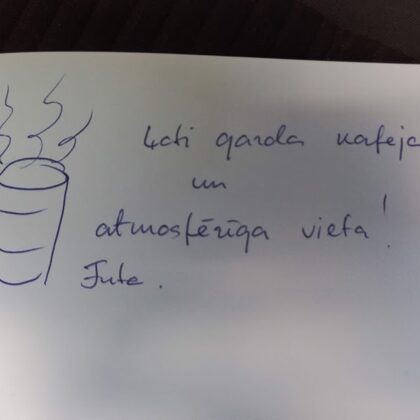 Ļoti garda kafeja
un
atmosfērīga vieta!
Jute.